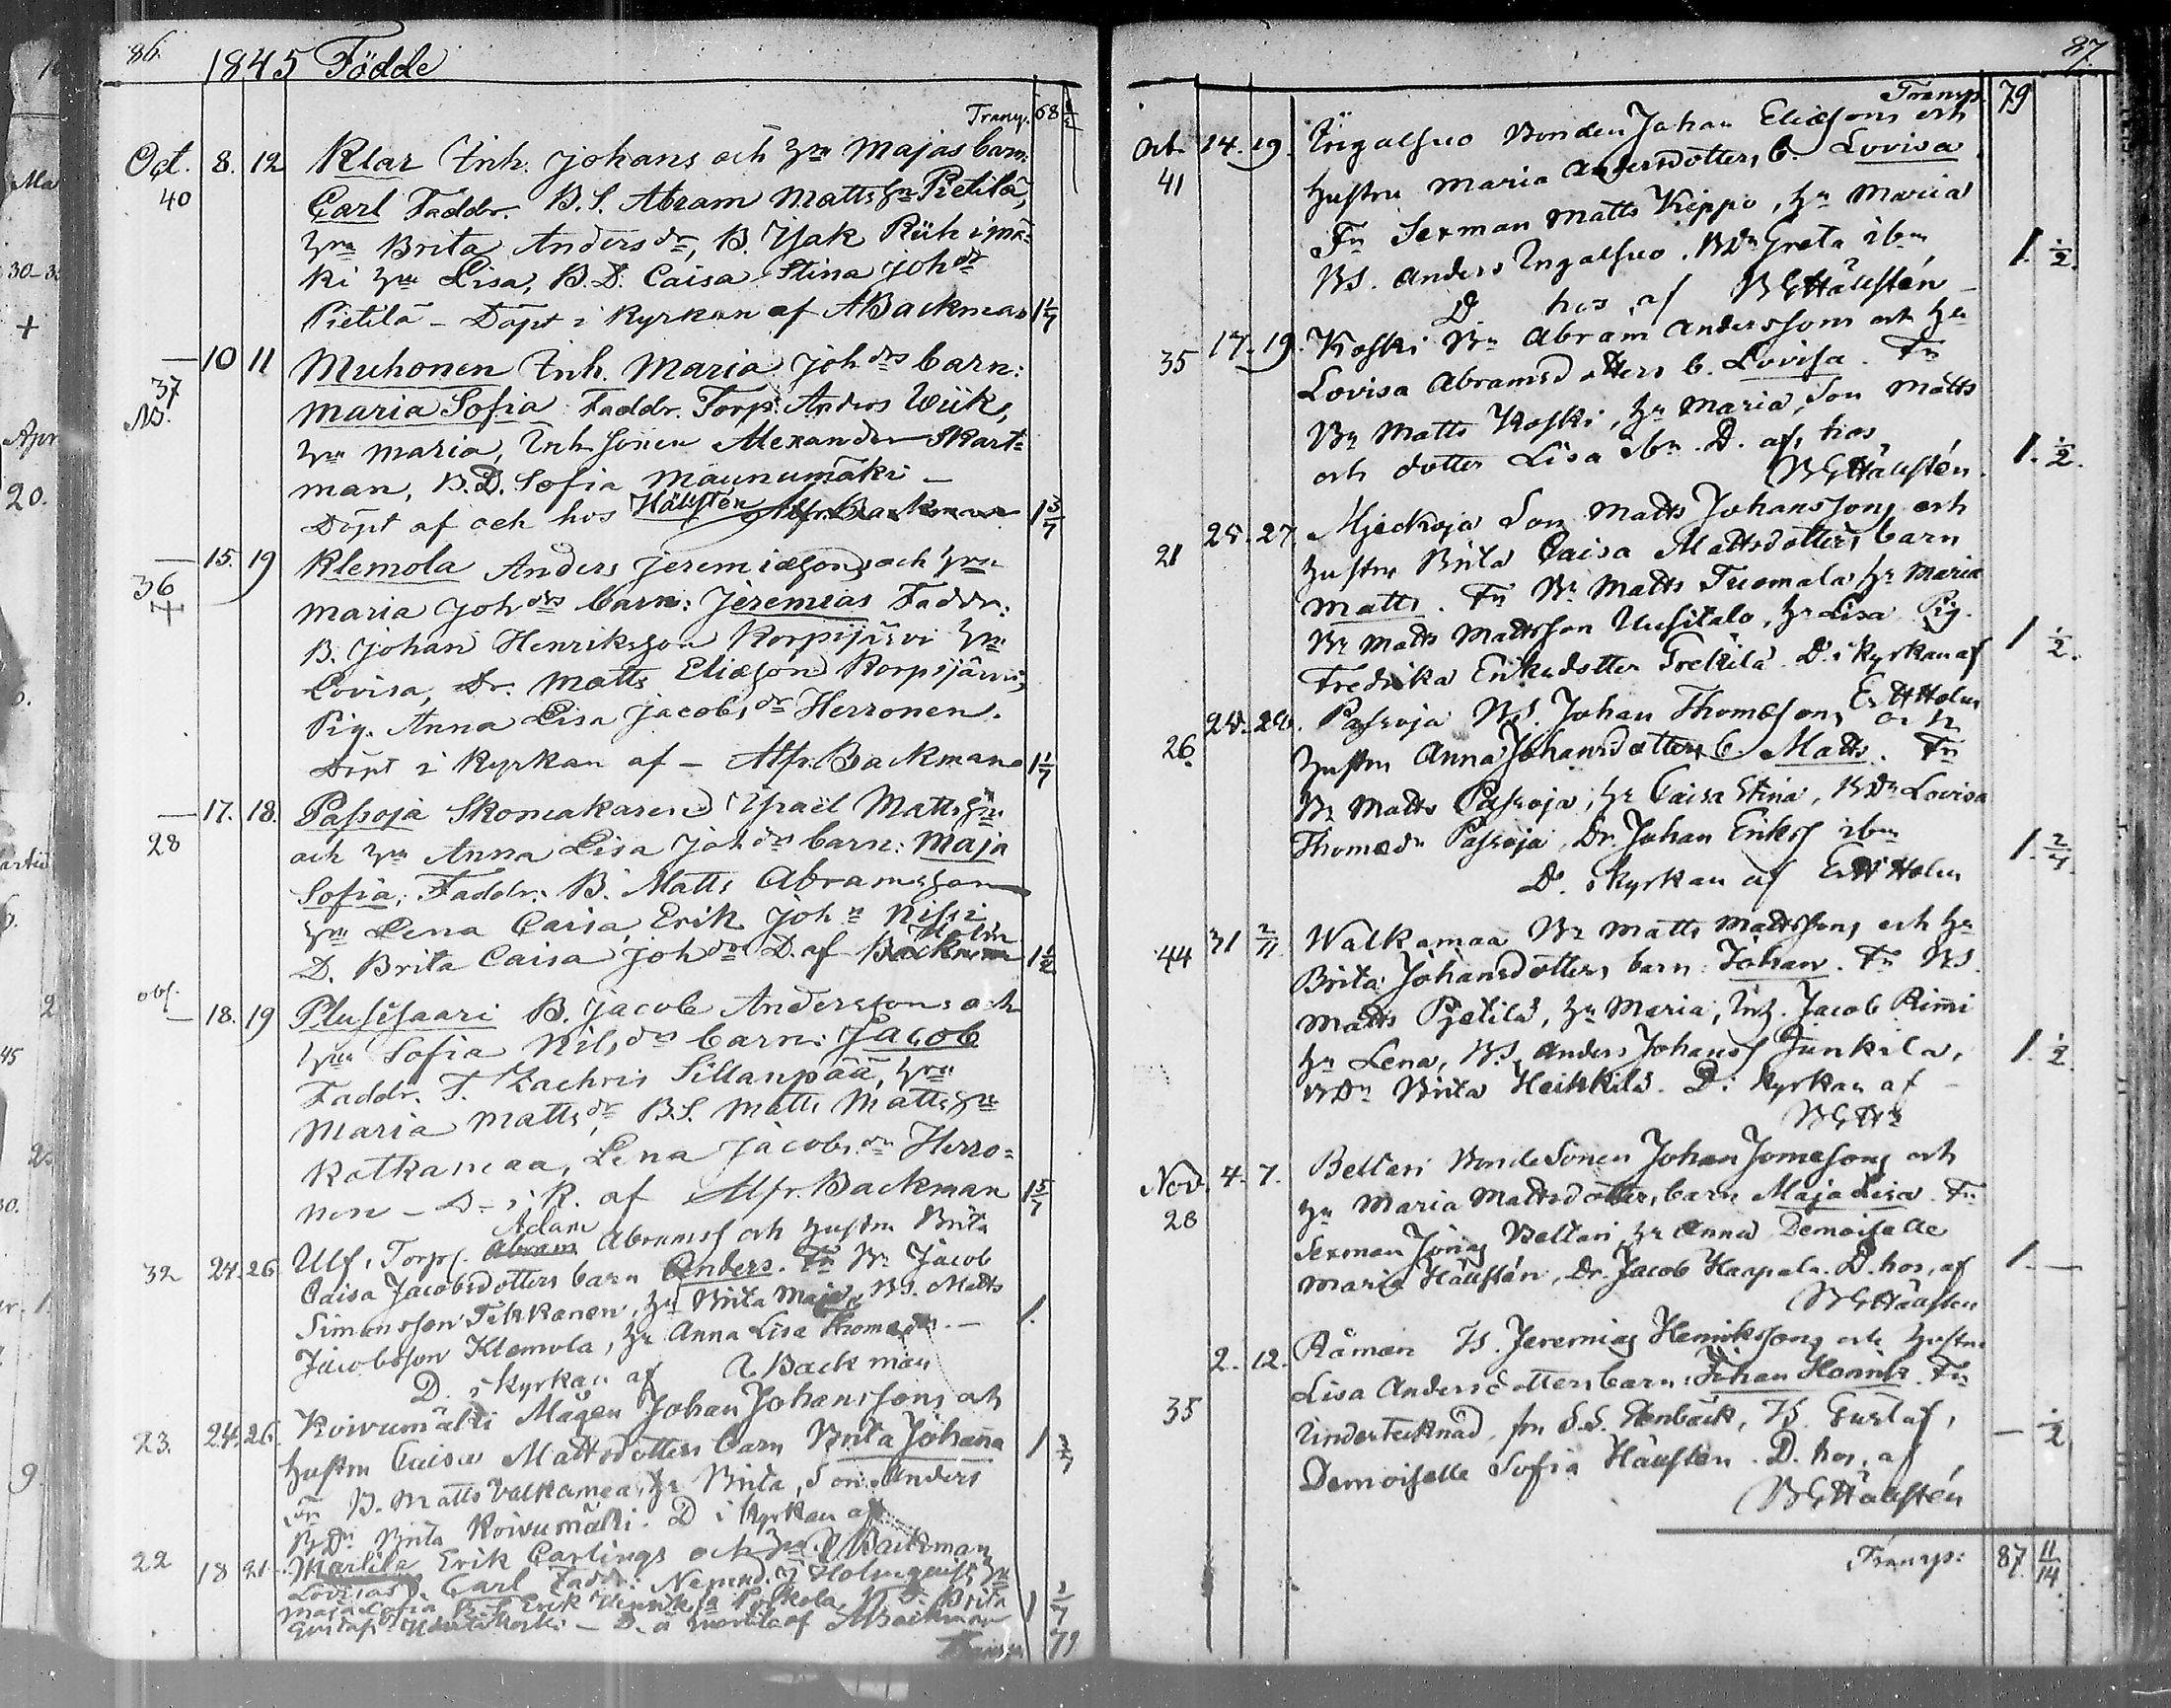 86.
1845 Födde
Transp. 68
Oct. 8. 12 Klar Inh. Johans och hru Majas barn:
40 Carl Faddr. B.S. Abram Matts Pietilä,
hru Brita Anders dr, B. Isak Riihimä-
ki hru Lisa, B.D. Caisa Stina Joh dr
Pietilä – Döpt i Kyrkan af A Backman 1
— 10 11 Muhonen Inh. Maria Joh drs barn:
37 Maria Sofia Faddr. Torp. Anders Wiik,
hru Maria, Inh Sonen Alexander Skart-
man, B.D. Sofia Maunumäki –
Döpt af och hos Hällstén 1 3/7
— 15. 19 Klemola Anders Jeremiæsons och hru
36 Maria Joh drs barn: Jeremias Faddr:
B. Johan Henriksson Korpijärvi hru
Lovisa, Dr. Matts Eliæson Korpijärvi,
Pig. Anna Lisa Jacobs dr Herronen.
Döpt i Kyrkan af – Alfr. Backman 1 1/7
— 17. 18. Pasoja Skomakaren Israel Matts
28 och hru Anna Lisa Joh drs barn: Maja
Sofia: Faddr: B. Matts Abramsson
hru Lena Caisa, Erik Joh n Nissi
D. Brita Caisa Joh dr D. af Holm Backman 1 1/2
obs.
— 18. 19 Plusisaari B. Jacob Anderssons och
hru Sofia Nils drs barn: Jacob
Faddr. T. Zachris Sillanpää, hru
Maria Matts dr, B.S. Matts Matts
Kotkamaa, Lena Jacobs dr Herro-
nen – D – i K. af Alfr. Backman 1 5/7
32 24. 26 Ulf, Torp. Abram Adam Abramss och hustru Brita
Caisa Jacobsdotters barn Anders. Fr Br Jacob
Simonsson Tikkanen, hu Brita Maja, BS. Matts 1.
Jacobsson Klemola, hr Anna Lisa Thomædr. –
D. i Kyrkan af A Backman
23. 24. 26. Koivumäki Mågen Johan Johanssons och
hustru Caisa Mattsdotters barn Brita Johanna 1
Fr B. Matts Valkamaa, hr Brita, Son Anders
BDr Brita Koivumäki. D i Kyrkan af
22 18 21 Marttila Erik Carlings och hru Backman
Lovisas Carl Faddr: Nemnd. J Holmquist, hru
Maja Sofia B.S. Erik Henriks Pockela, Brita 1
Gustafs – D. af ABackman
79

87.
Transp. 79
Oct. 14. 19. Ingalsuo Bonden Johan Eliæsons och
41 hustru Maria Andersdotters b. Lovisa.
Fr Sexman Matts Kippo, hr Maria
BS. Anders Ingalsuo. BDr Greta ibm 1. 1/2.
D hos af BGHällstén –
35 17. 19. Koski Br Abram Anderssons och hu
Lovisa Abramsdotters b. Lovisa. Fr
Br Matts Koski, hr Maria, Son Matts
och dotter Lisa ibm. D. af, hos 1. 1/2.
BGHällstén.
21 25. 27. Mjeckoja Son Matts Johanssons och
hustru Brita Caisa Mattsdotters barn
Matts. Fr Br Matts Tuomala hr Maria
Br Matts Mattsson Uusitalo, hr Lisa Pig. 1 1/2.
Fredrika Eriksdotter Frekilä. D. i Kyrkan af
E. H Holm
26 25. 26. Pasoja BS. Johan Thomæsons och
hustru Anna Johansdotters b. Matts. Fr
Br Matts Pasoja, hr Caisa Stina, BDr Lovisa
Thomædr Pasoja, Dr. Johan Eriks ibm 1.
D. i Kyrkan af EH Holm
44 31 2/11 Walkamaa Br Matts Mattssons och hr
Brita Johansdotters barn: Johan. Fr BS.
Matts Pjetilä, hr Maria, Inh. Jacob Rimi
hr Lena, BS. Anders Johanss Junkila, 1. 1/2
BDr Brita Heikkilä. D. i Kyrkan af –
BGHn
Nov. 4. 7. Beltari BondeSonen Johan Jonæsons och
28 hr Maria Mattsdotters barn Maja Lisa. Fr
Sexman Jonas Beltari hr Anna Demoiselle
Maria Hällstén, Dr. Jacob Harpala. D. hos, af 1. —
BGHällstén
2. 12. Råman Jeremias Henrikssons och hustru
35 Lisa Andersdotters barn: Johan Henrik. Fr
Undertecknad, fru S.S. Stenbäck, Gustaf, — 1/2
Demoiselle Sofia Hällsten. D. hos, af
BGHällstén
Transp: 87. 11/14